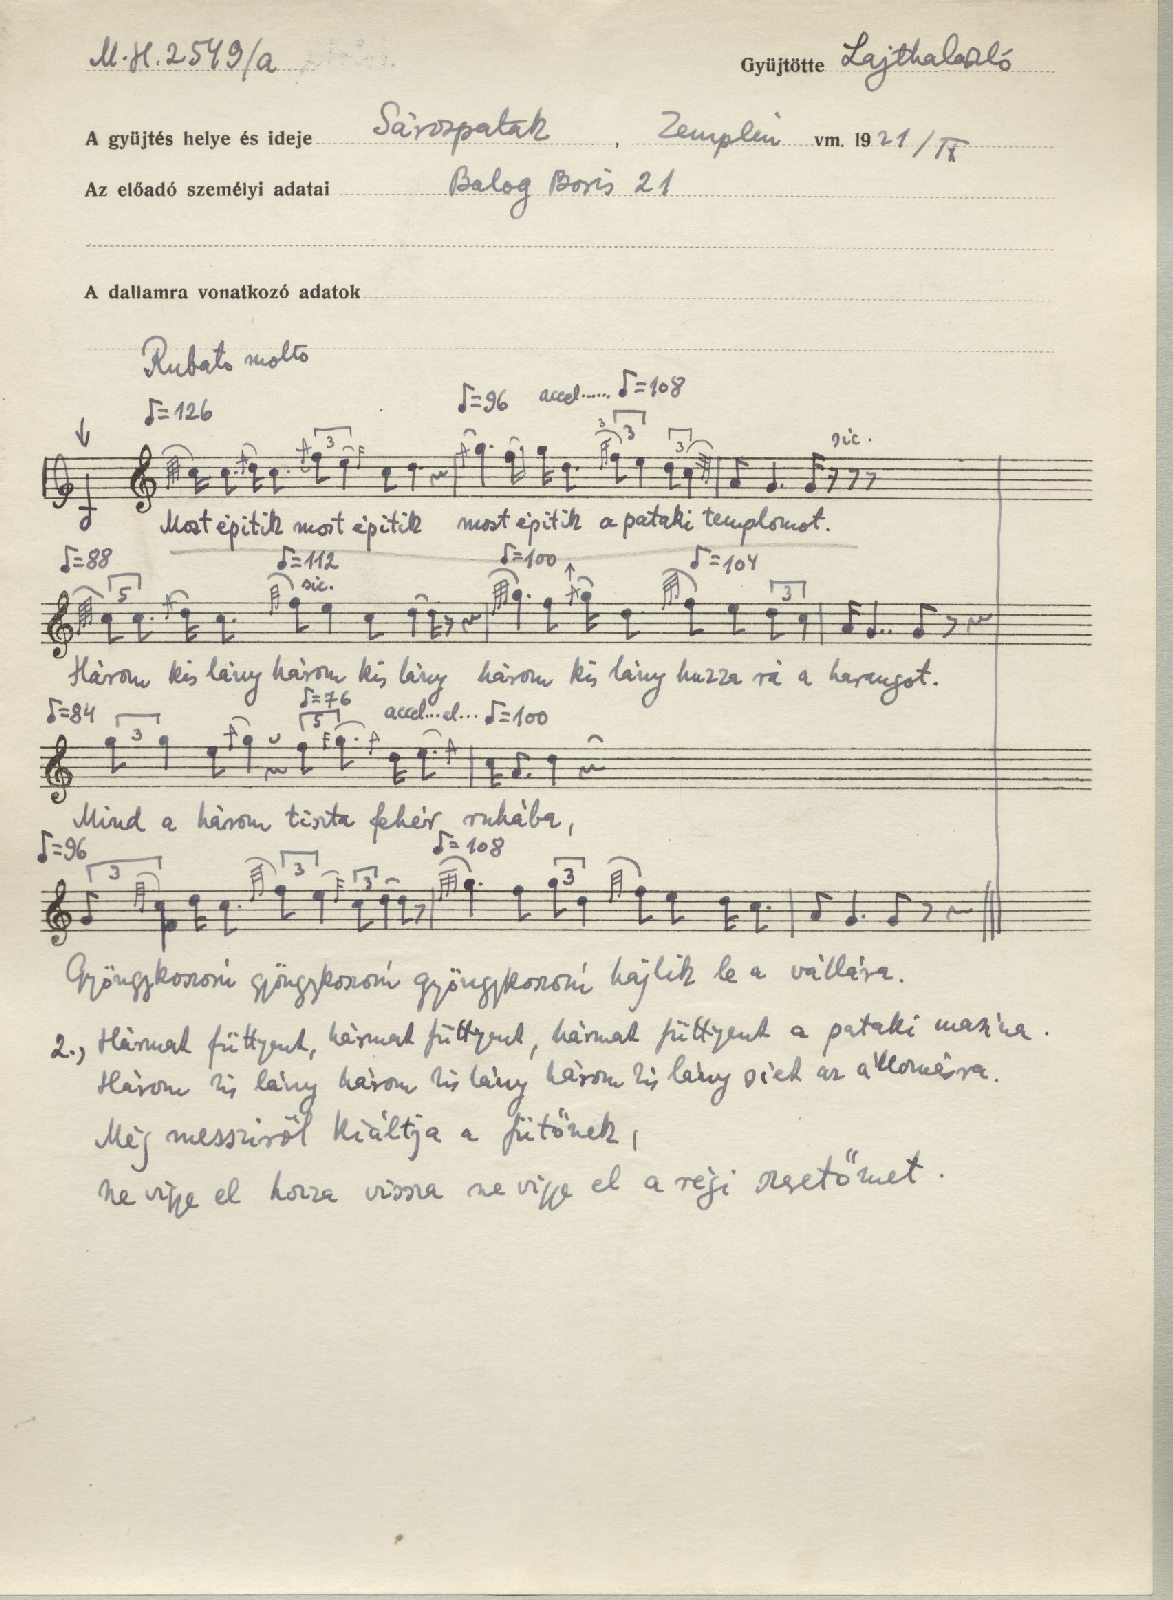 M.H. 2549/a
Gyüjtötte Lajtha László
A gyüjtés helye és ideje Sárospatak , Zemplén vm. 1921/IX
Az előadó személyi adatai Balog Boris 21
A dallamra vonatkozó adatok
Rubato molto
♪=126 ♪=96 accel...... ♪=108
3 3 3 3 sic.
Most épitik most épitik most épitik a pataki templomot.
♪=88 ♪=112 ♪=100 ♪=104
5 sic. 3
Három kis lány három kis lány három kis lány huzza rá a harangot.
♪=84 ♪=76 accel...el... ♪=100
3 5
Mind a három tiszta fehér ruhába,
♪=96 ♪=108
3 3 3 3
Gyöngykoszorú gyöngykoszorú gyöngykoszorú hajlik le a vállára.
2., Hármat füttyent, hármat füttyent, hármat füttyent a pataki masina.
Három kis lány három kis lány három kis lány siet az állomásra.
Még messziről kiáltja a fütőnek,
ne vigye el hozza vissza ne vigye el a régi szeretőmet.